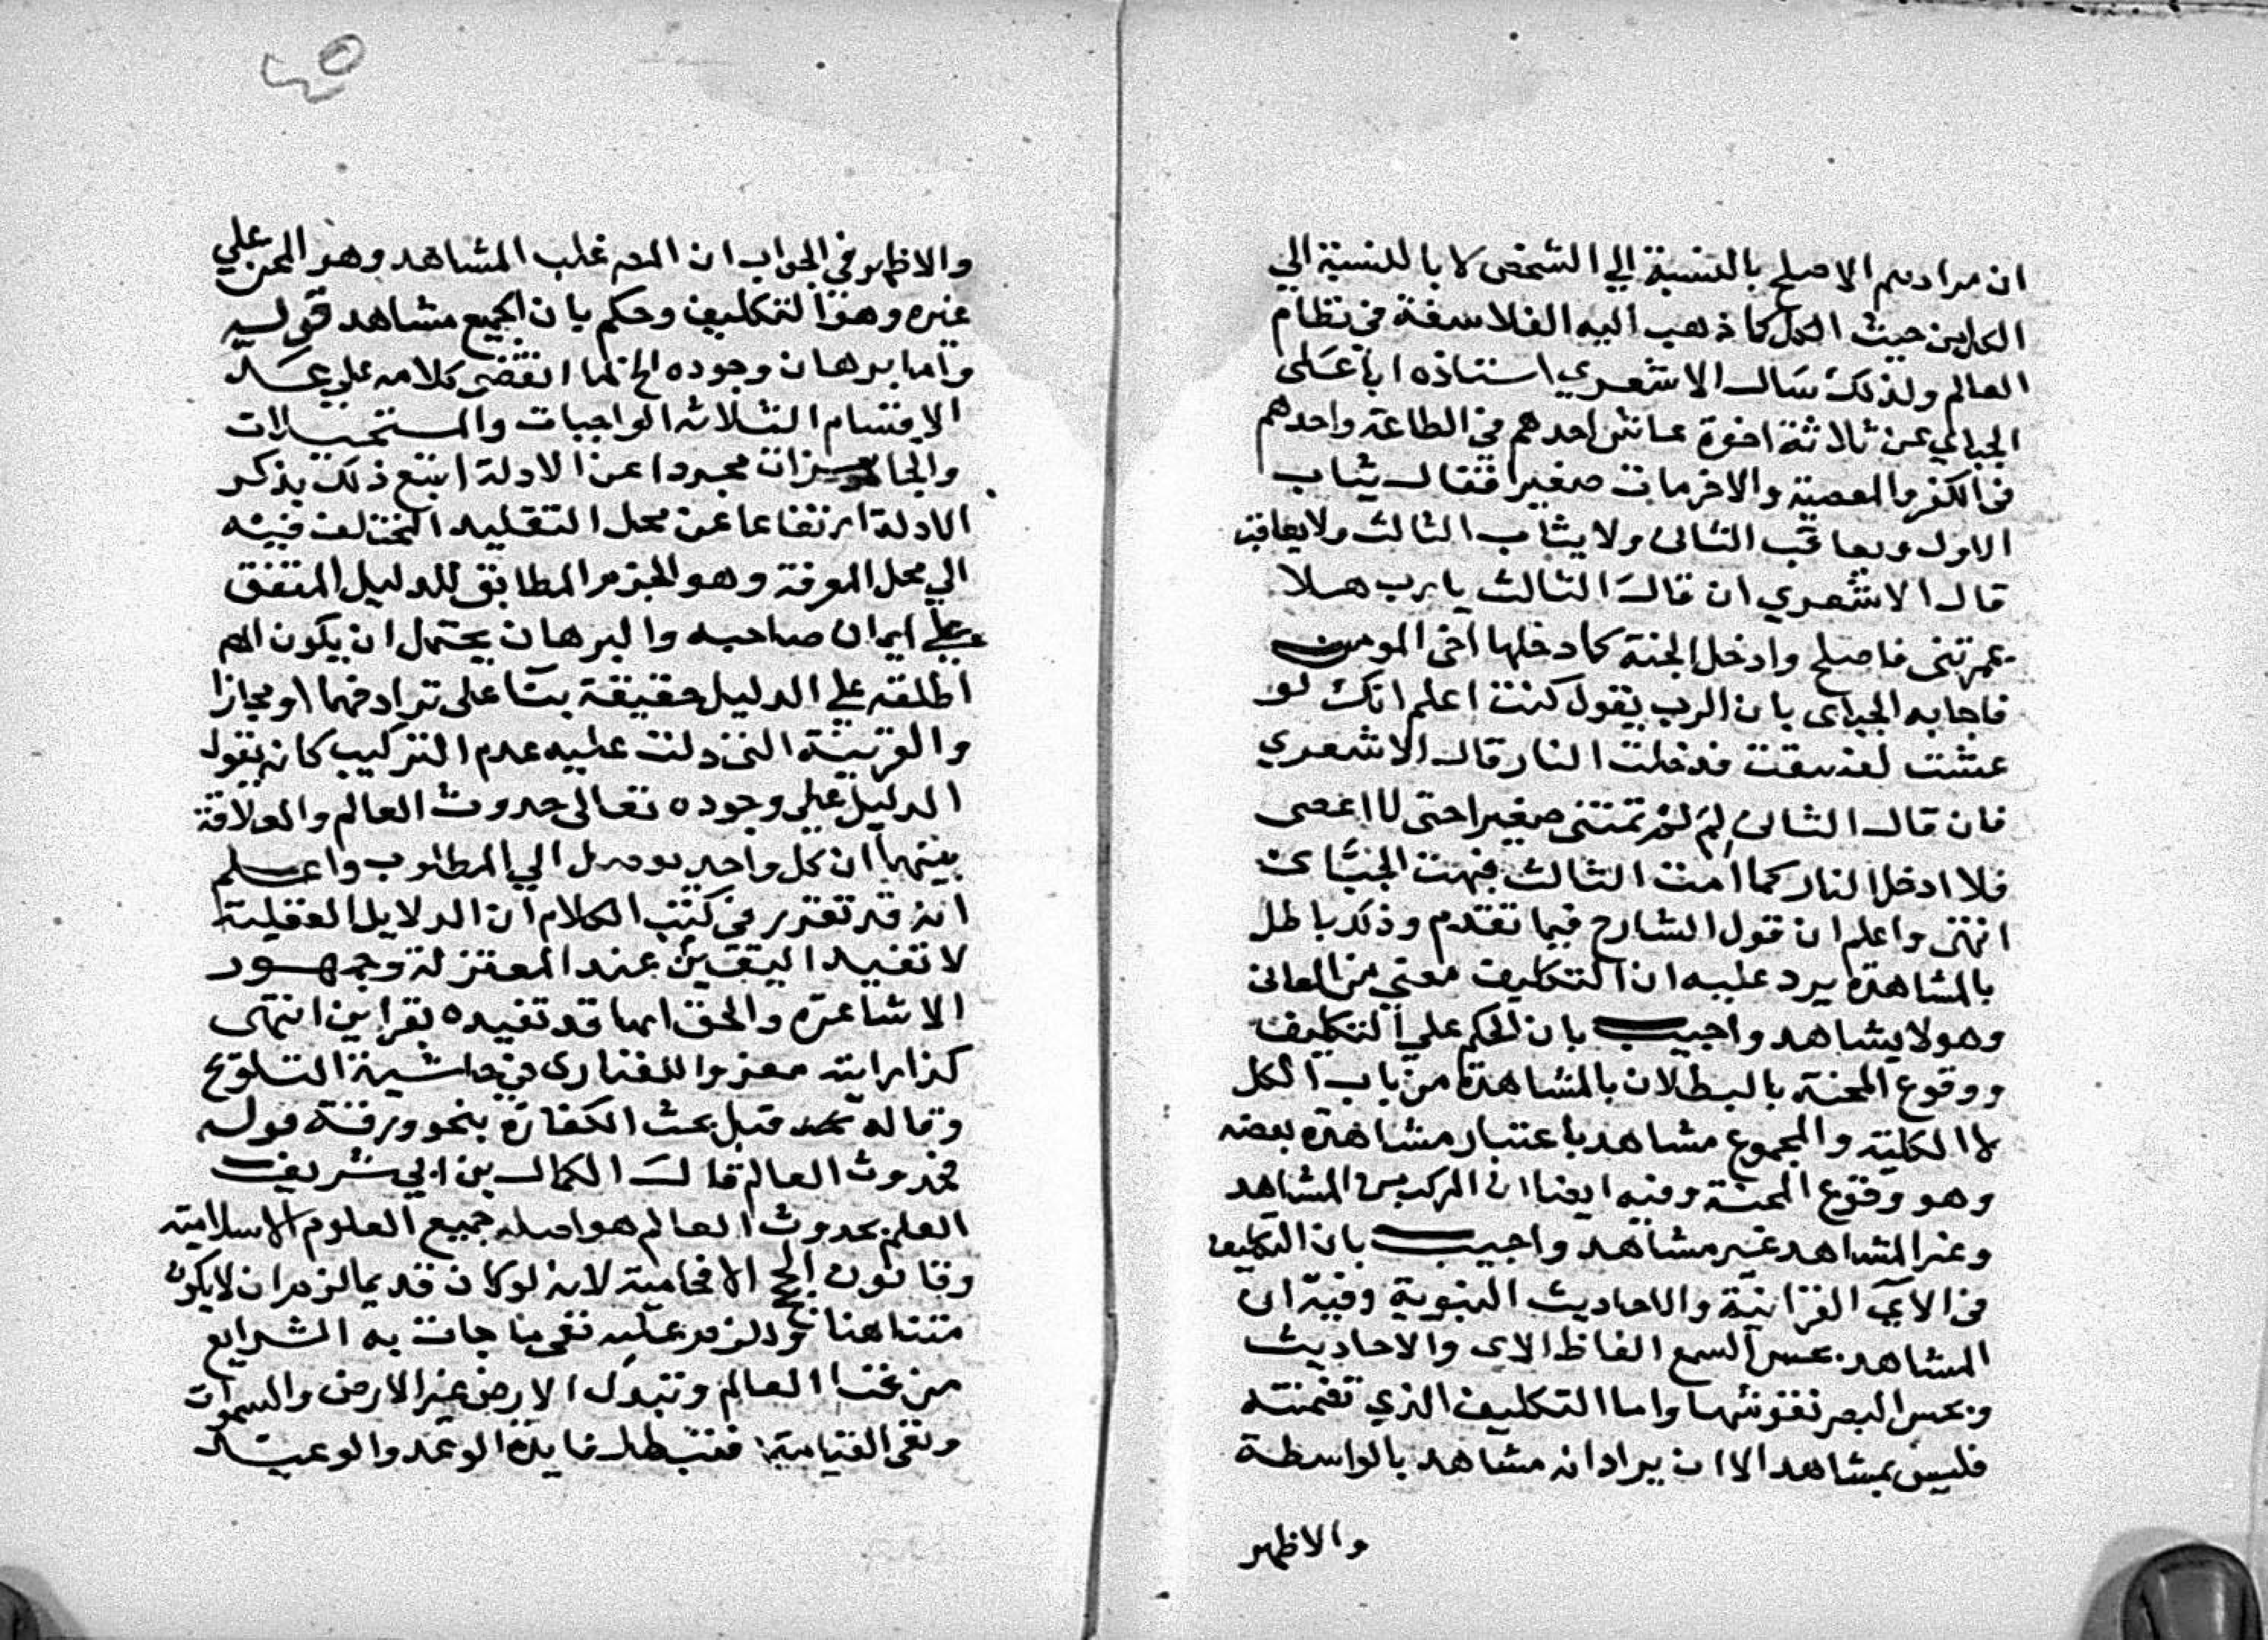 ان مرادهم الاصلح بالنسبة الي الشخص لا بالنسبة الي
الكل من حيث الكل كما ذهب اليه الفلاسفة في نظام
العالم ولذلك سال الاشعري استاذه ابا على
الجباي عن ثلاثة اخوة عاش احدهم في الطاعة واحدهم
في الكفر والمعصية والاخر مات صغيرا فقال يثاب
الاول ويعاقب الثانى ولا يثاب الثالث ولا يعاقب
قال الاشعري ان قال الثالث يا رب هلا
عمرتنى فاصلح وادخل الجنة كما دخلها اخى المومن
فاجابه الجباى بان الرب يقول كنت اعلم انك لو
عشت لفسقت فدخلت النار قال الاشعري
فان قال الثانى لم لم تمتنى صغيرا حتى لا اعصى
فلا ادخل النار كما امت الثالث فبهت الجباى
انتهى واعلم ان قول الشارح فيما تقدم وذلك باطل
بالمشاهدة يرد عليه ان التكليف معني من المعانى
وهو لا يشاهد واجيب بان الحكم علي التكليف
ووقوع المحنة بالبطلان بالمشاهدة من باب الكل
لا الكلية والمجموع مشاهد باعتبار مشاهدة بعضه
وهو وقوع المحنة وفيه ايضا ان المركب من المشاهد
وغير المشاهد غير مشاهد واجيب بان التكليف
في الآي القرانية والاحاديث النبوية وفيه ان
المشاهد بحس السمع الفاظ الاى والاحاديث
وبحس البصر نقوشها واما التكليف الذي تضمنته
فليس بمشاهد الا ان يراد انه مشاهد بالواسطة
والاظهر
٤٥
والاظهر في الجواب ان المص غلب المشاهد وهو المحن علي
غيره وهو التكليف وحكم بان الجميع مشاهد قوله
واما برهان وجوده الخ لما انقضى كلامه علي عد
الاقسام الثلاثه الواجبات والمستحيلات
والجايزات مجردا عن الادلة اتبع ذلك بذكر
الادلة ارتفاعا عن محل التقليد المختلف فيه
الي محل المعرفة وهو الجزم المطابق للدليل المتفق
علي ايمان صاحبه والبرهان يحتمل ان يكون المص
اطلقه علي الدليل حقيقة بنا على ترادفهما او مجازا
والقرينة التي دلت عليه عدم التركيب كانه يقول
الدليل علي وجوده تعالى حدوث العالم والعلاقة
بينهما ان كل واحد يوصل الي المطلوب واعلم
انه قد تقرر في كتب الكلام ان الدلايل العقلية
لا تفيد اليقين عند المعتزلة وجمهور
الاشاعرة والحق انها قد تفيده بقراين انتهى
كذا رايته معزوا للفنارى في حاشية التلويح
وقاله قبل بحث الكفارة بنحو ورقة قوله
فحدوث العالم قال الكمال بن ابي شريف
العلم بحدوث العالم هو اصل جميع العلوم الاسلامية
وقانون الحجج الافحامية لانه لو كان قديما لزم ان لا يكون
متناهنا ولزم عليه نفي ما جات به الشرايع
من فنا العالم وتبدل الارض غير الارض والسموات
ونفى القيامة فتبطل فايدة الوعد والوعيد